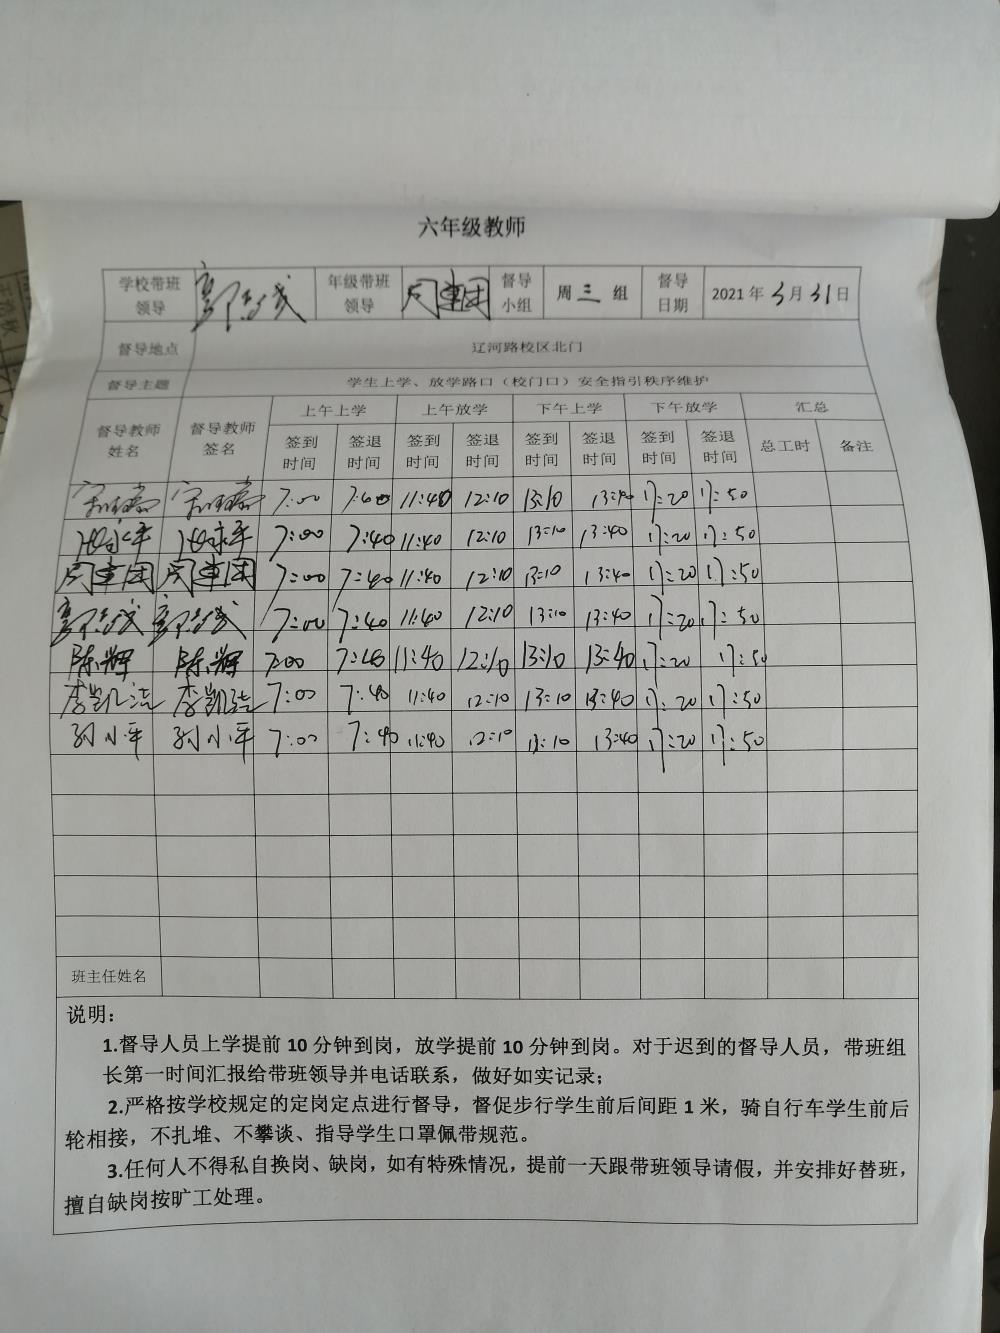 六年级教师
学校带班领导 年级带班领导 周 督导小组 周三组 督导日期 2021年3月31日
督导地点 辽河路校区北门
督导主题 学生上学、放学路口（校门口）安全指引秩序维护
督导教师姓名 督导教师签名 上午上学 上午放学 下午上学 下午放学 汇总
签到时间 签退时间 签到时间 签退时间 签到时间 签退时间 签到时间 签退时间 总工时 备注
7:00 7:40 11:40 12:10 13:10 13:40 17:20 17:50
7:00 7:40 11:40 12:10 13:10 13:40 17:20 17:50
7:00 7:40 11:40 12:10 13:10 13:40 17:20 17:50
7:00 7:40 11:40 12:10 13:10 13:40 17:20 17:50
陈辉 陈辉 7:00 7:40 11:40 12:10 13:10 13:40 17:20 17:50
李凯洁 李凯洁 7:00 7:40 11:40 12:10 13:10 13:40 17:20 17:50
孙小平 孙小平 7:00 7:40 11:40 12:10 13:10 13:40 17:20 17:50
班主任姓名
说明：
1.督导人员上学提前 10 分钟到岗，放学提前 10 分钟到岗。对于迟到的督导人员，带班组
长第一时间汇报给带班领导并电话联系，做好如实记录；
2.严格按学校规定的定岗定点进行督导，督促步行学生前后间距 1 米，骑自行车学生前后
轮相接，不扎堆、不攀谈、指导学生口罩佩带规范。
3.任何人不得私自换岗、缺岗，如有特殊情况，提前一天跟带班领导请假，并安排好替班，
擅自缺岗按旷工处理。